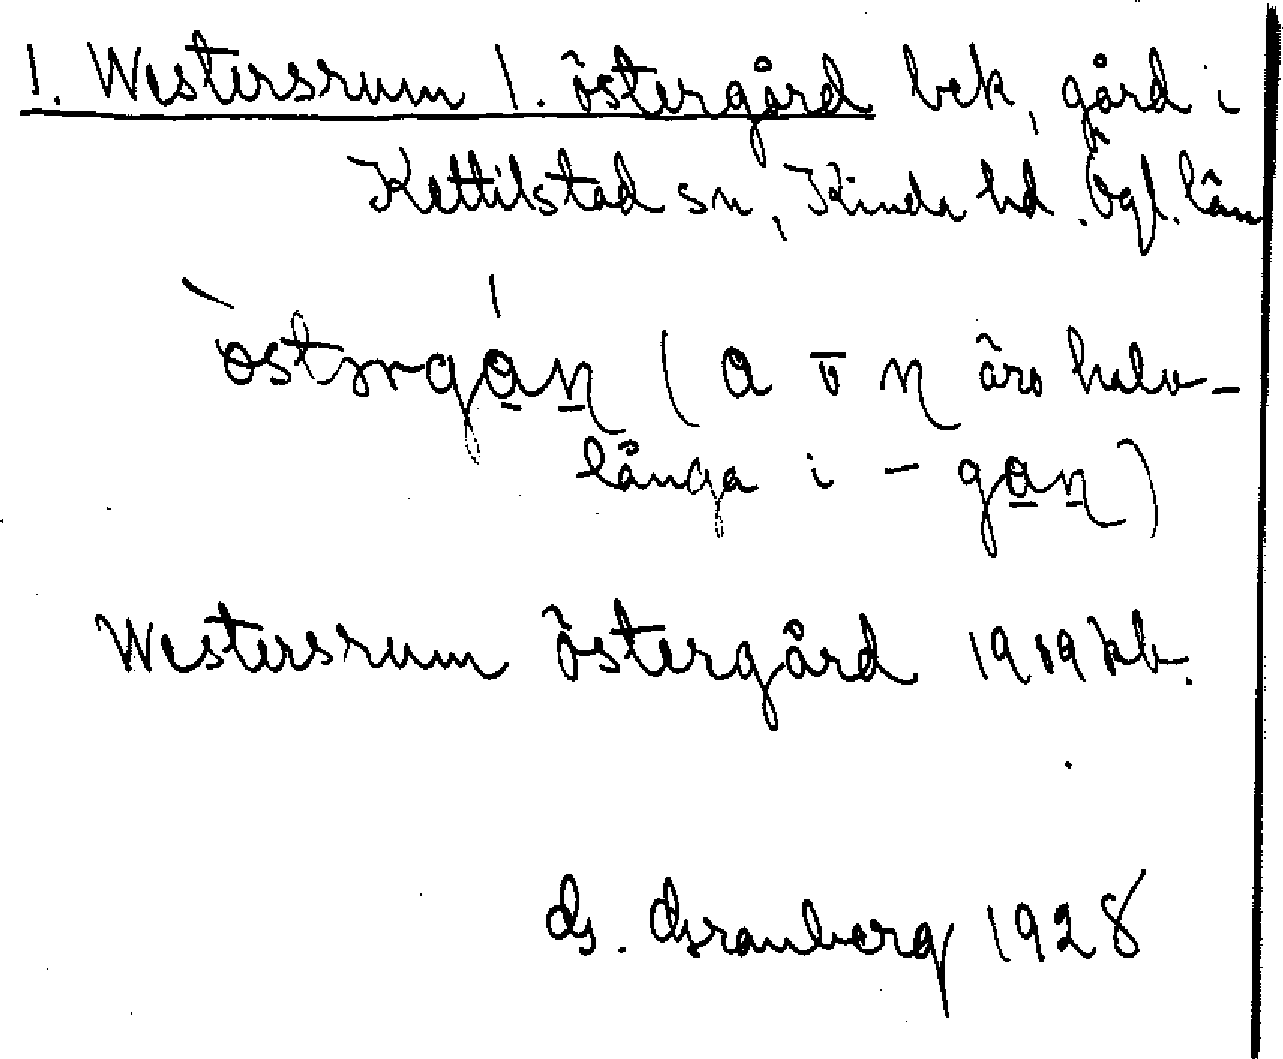 1. Westersrum 1. östergård bek, gård i
Kettilstad sn, Kinda hd. Ögl. län
östərgán (a o n äro halv-
långa i - gan)
Westersrum östergård 1919 kb.
G. Granberg 1928